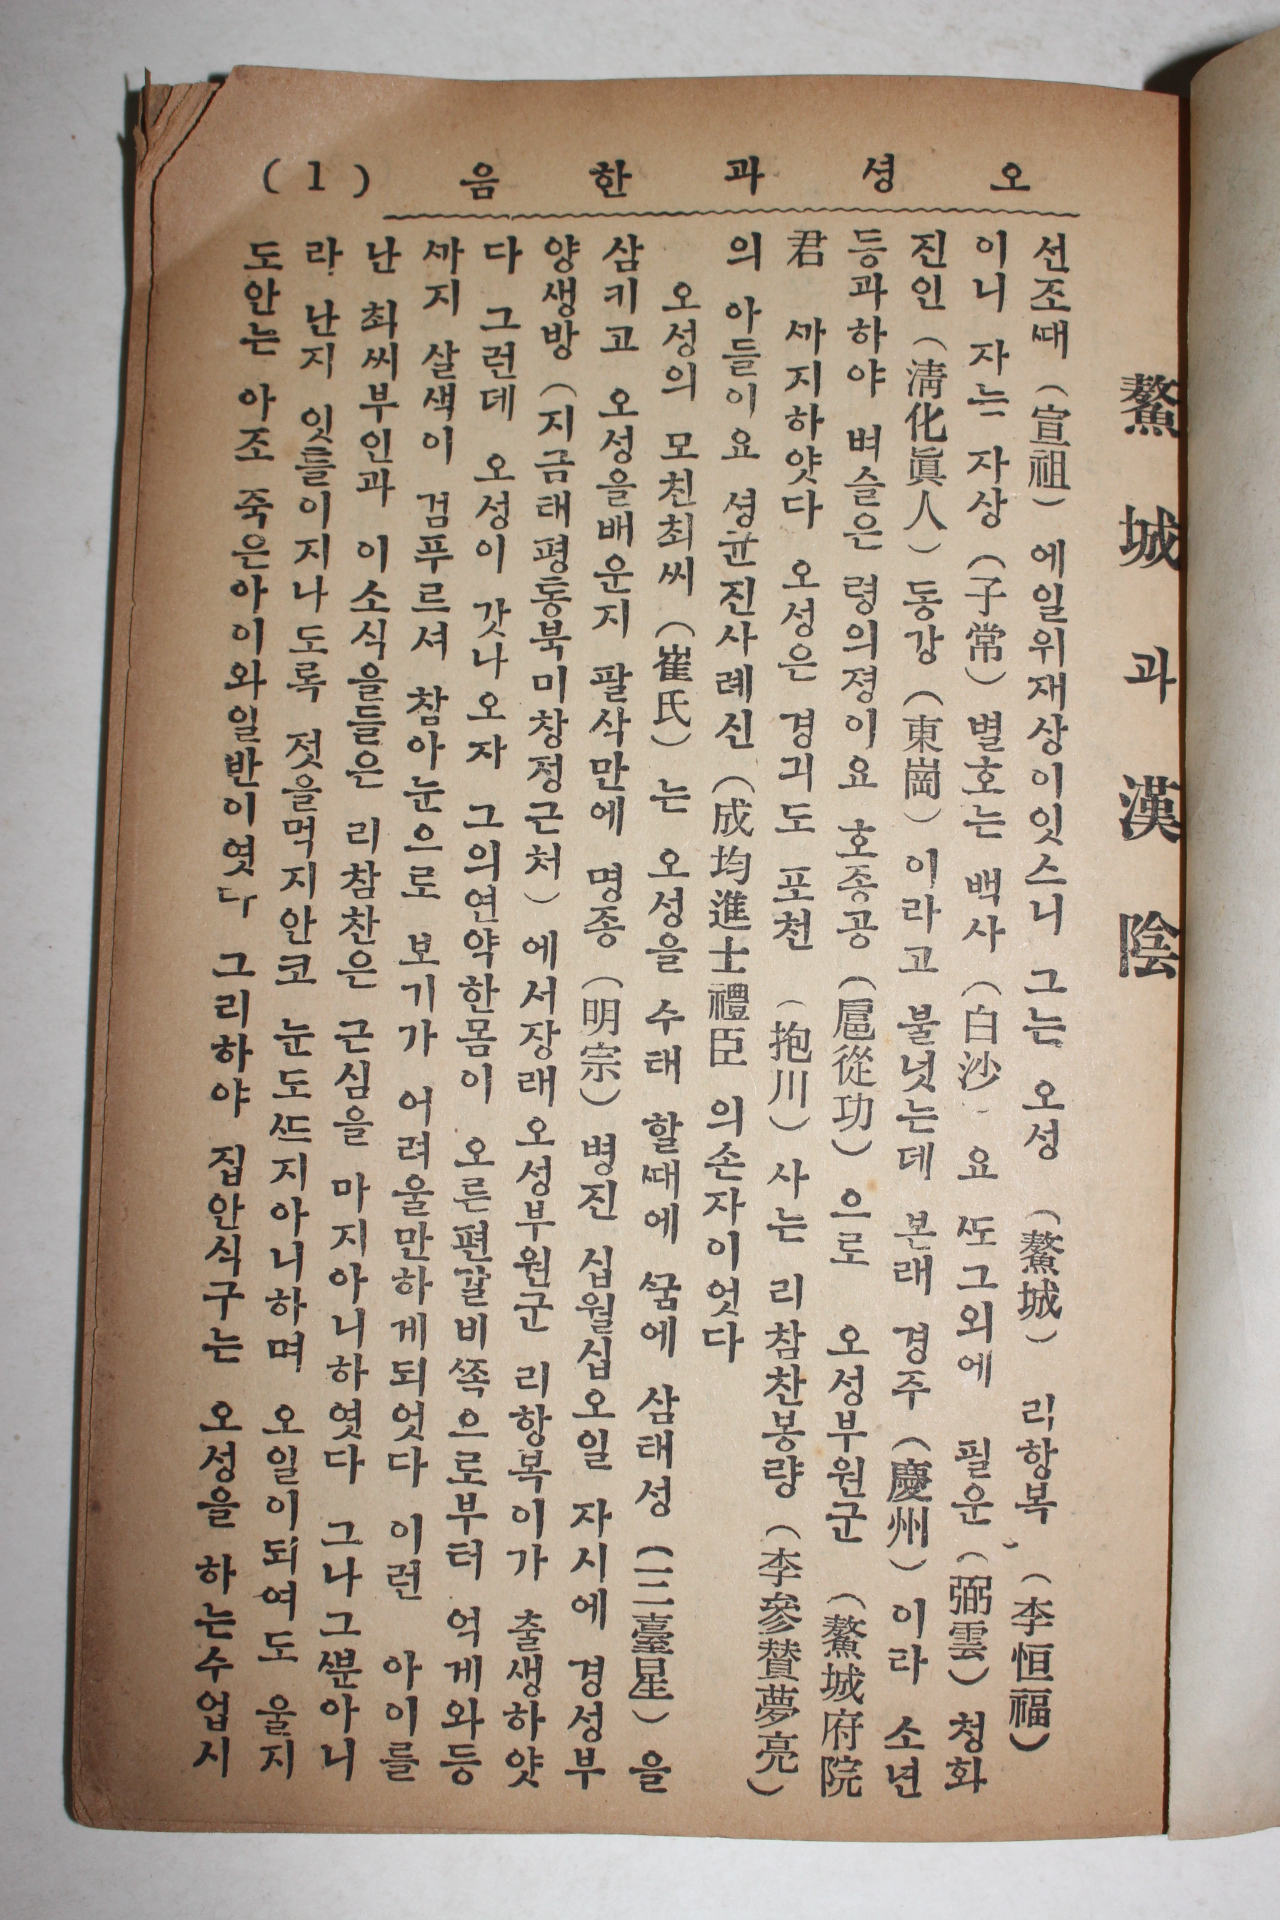 오셩과한음 (1)
鰲城과漢陰
선조ᄯᅢ (宣祖) 에일위재상이잇스니 그는 오성 (鰲城) 리항복 (李恒福)
이니 자는 자상 (子常) 별호는 백사 (白沙 요 ᄯᅩ그외에 필운 (弼雲) 청화
진인 (淸化眞人) 동강 (東崗) 이라고 불넛는데 본래 경주 (慶州) 이라 소년
등과하야 벼슬은 령의졍이요 호종공 (扈從功) 으로 오성부원군 (鰲城府院
君 ᄭᅡ지하얏다 오성은 경긔도 포천 (抱川) 사는 리참찬봉량 (李參賛夢亮)
의 아들이요 셩균진사례신 (成均進士禮臣 의손자이엇다
오성의 모친최씨 (崔氏) 는 오성을 수태 할ᄯᅢ에 ᄭᅮᆷ에 삼태성 (三臺星) 을
삼키고 오성을배운지 팔삭만에 명종 (明宗) 병진 십월십오일 자시에 경성부
양생방 (지금태평통북미창정근처) 에서장래오성부원군 리항복이가 출생하얏
다 그런데 오성이 갓나오자 그의연약한몸이 오른편갈비ᄶᅩᆨ으로부터 억게와등
ᄭᅡ지 살색이 검푸르셔 참아눈으로 보기가 어려울만하게되엇다 이런 아이를
난 최씨부인과 이소식을들은 리참찬은 근심을 마지아니하엿다 그나그ᄲᅮᆫ아니
라 난지 잇틀이지나도록 젓을먹지안코 눈도ᄯᅳ지아니하며 오일이되여도 울지
도안는 아조 죽은아이와일반이엿다 그리하야 집안식구는 오성을 하는수업시